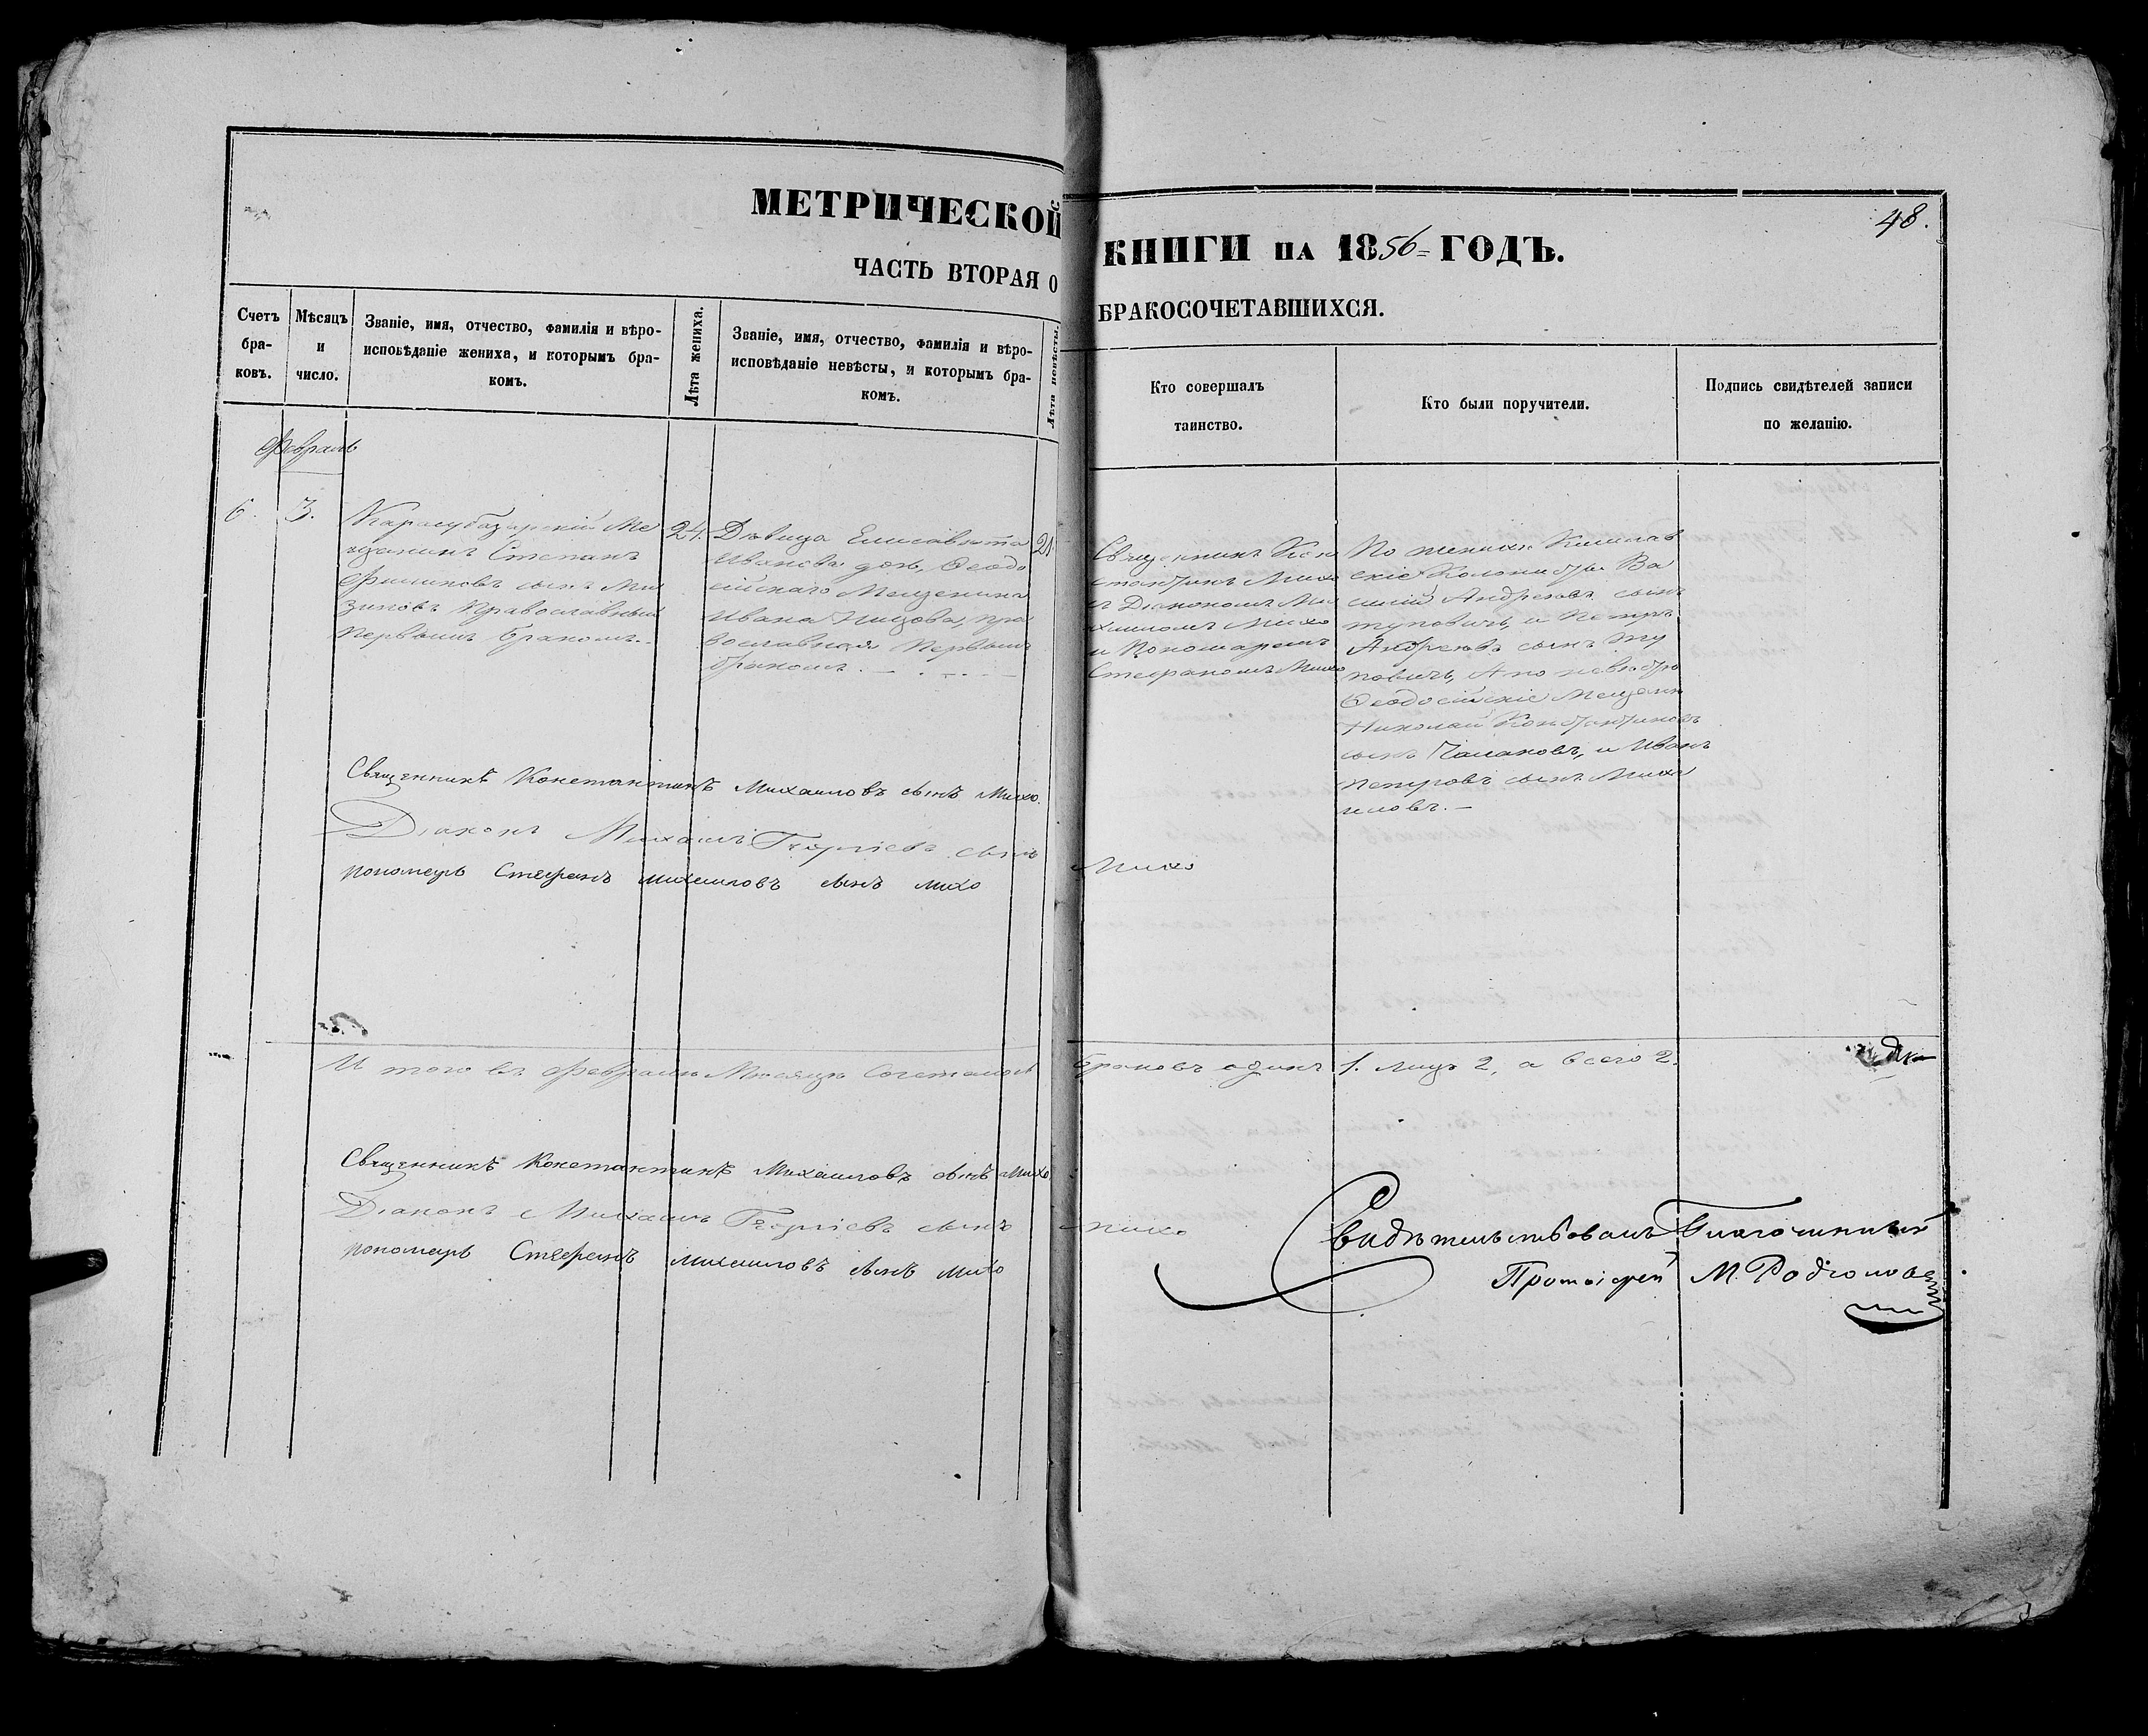 МЕТРИЧЕСКОЙ КНИГИ НА 1856 ГОДЪ.
48.
ЧАСТЬ ВТОРАЯ О БРАКОСОЧЕТАВШИХСЯ.
Счетъ бра-
ковъ.
Мѣсяцъ
и
число.
Званіе, имя, отчество, фамилія и вѣро-
исповѣданіе жениха, и которымъ бра-
комъ.
Лѣта жениха.
Званіе, имя, отчество, фамилія и вѣро-
исповѣданіе невѣсты, и которымъ бра-
комъ.
Лѣта невѣсты.
Кто совершалъ
таинство.
Кто были поручители.
Подпись свидѣтелей записи
по желанію.
Февраль
6.
3.
Карасубазарскій Ме
щанинъ Степанъ
Филиповъ сынъ
Православный
Первымъ бракомъ.
24.
Дѣвица Елисавета
Иванова дочь, Ѳеодо
сійскаго Мещанина
Ивана пра
вославная Первымъ
бракомъ.
21.
Священникъ Кон
стантинъ Михо
съ Діакономъ Ми
хаиломъ Михо
и Пономаремъ
Стефаномъ Михо
По женихѣ
скіе Колонисты Ва
силій Андреевъ сынъ
Туповичъ, и Петръ
Андреевъ сынъ Ту
повичъ, А по невѣстѣ
Ѳеодосійскіе Мещане
Николай Константиновъ
сынъ Чалаковъ, и Иванъ
Петровъ сынъ Миха
иловъ.
Священникъ Константинъ Михаиловъ сынъ Михо.
Діаконъ Михаилъ Георгіевъ сынъ Михо
пономарь Стефанъ михаиловъ сынъ михо
И того въ Февралѣ Месяцѣ Сочеталось браковъ одинъ 1. лицъ 2, а всего 2.
Священникъ Константинъ Михаиловъ сынъ Михо
Діаконъ Михаилъ Георгіевъ сынъ Михо
пономарь Стефанъ михаиловъ сынъ михо
Свидѣтельствовалъ Благочинный
Протоіерей М. Родіоновъ